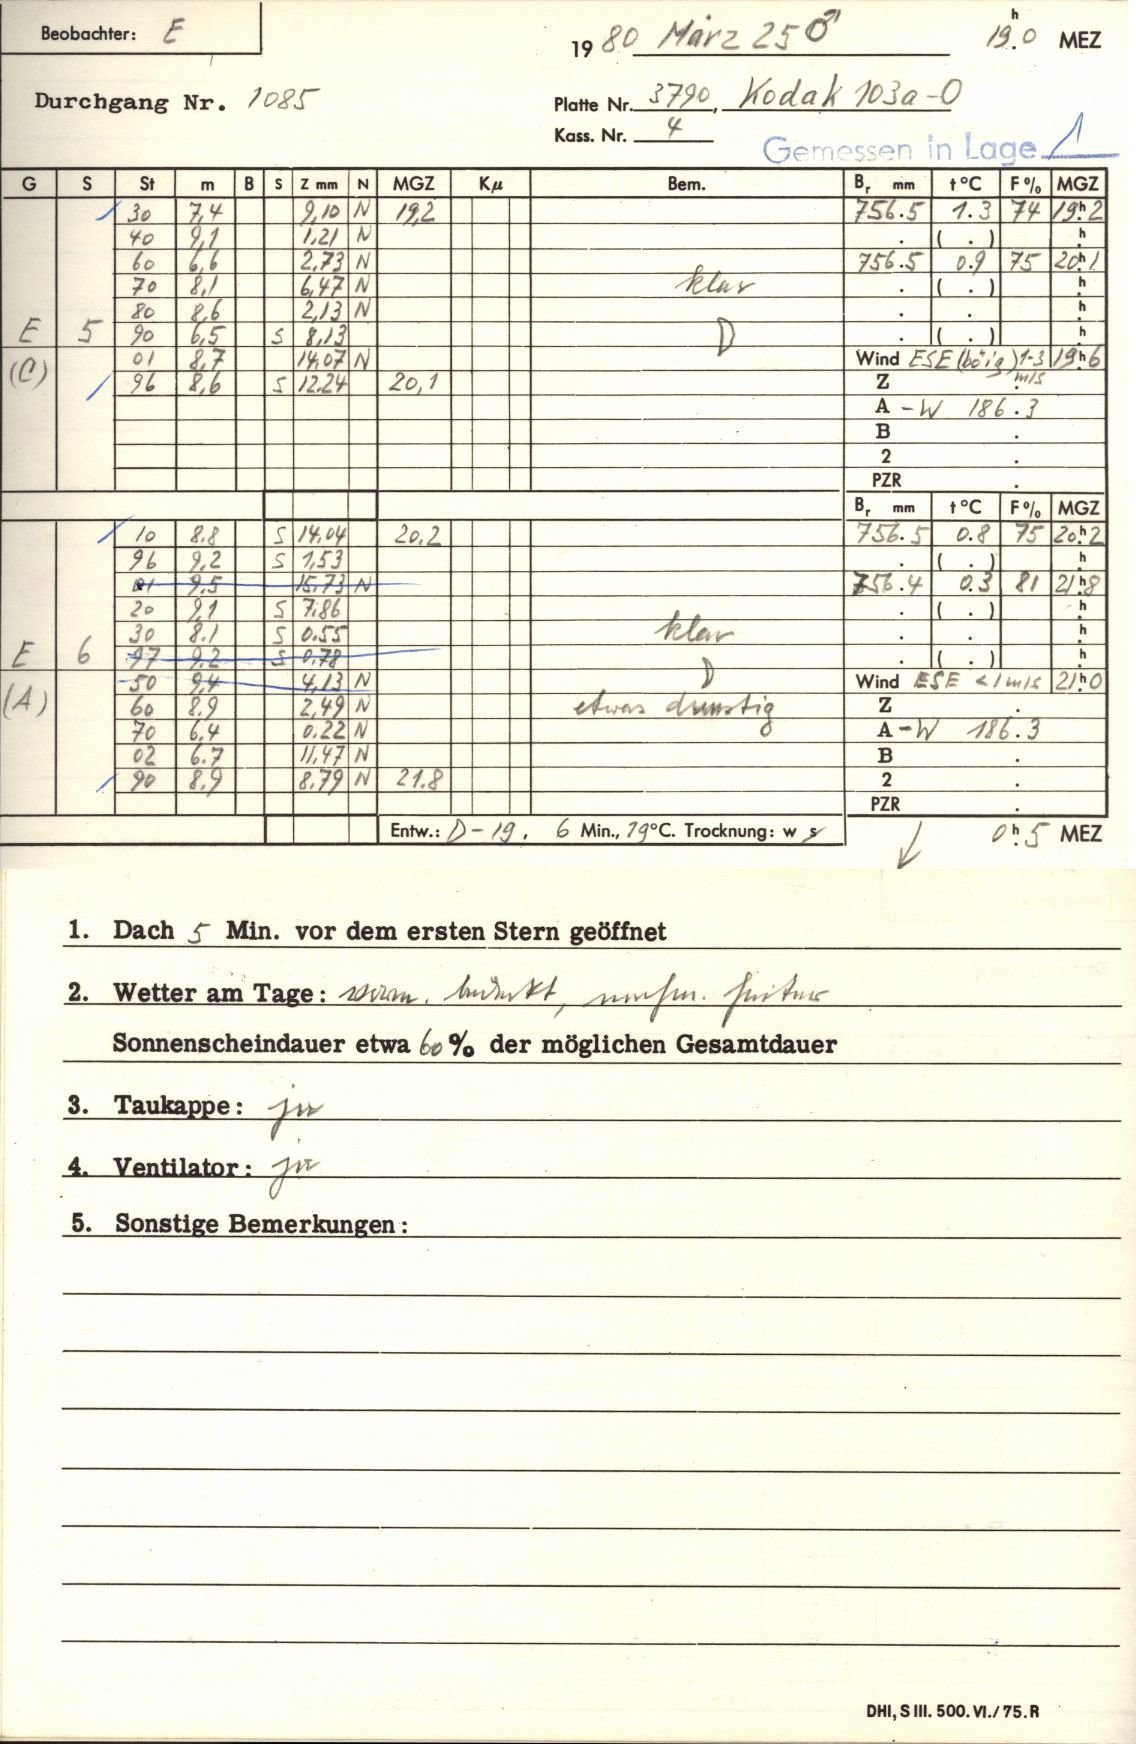 Beobachter: E
1980 März 25 ♂ 19ʰ.0 MEZ
Durchgang Nr. 1085
Platte Nr. 3790, Kodak 103a-O
Kass. Nr. 4
Gemessen in Lage 1
G S St m B S Z mm N MGZ Kμ Bem. Bᵣ mm t°C F% MGZ
30 7,4 9,10 N 19,2 756.5 1.3 74 19ʰ.2
40 9,1 1,21 N . ( . ) ʰ.
60 6,6 2,73 N 756.5 0.9 75 20ʰ.1
70 8,1 6,47 N klar . ( . ) ʰ.
80 8,6 2,13 N . . ʰ.
E 5 90 6,5 S 8,13 D . ( . ) ʰ.
(C) 01 8,7 14,07 N Wind ESE (böig) 1-3 m/s 19ʰ.6
96 8,6 S 12,24 20,1 Z .
A -W 186.3
B .
2 .
PZR .
Bᵣ mm t°C F% MGZ
10 8.8 S 14,04 20,2 756.5 0.8 75 20ʰ.2
96 9,2 S 1,53 . ( . ) ʰ.
01 9,5 15,73 N 756.4 0.3 81 21ʰ.8
20 9,1 S 7,86 . ( . ) ʰ.
30 8.1 S 0.55 klar . . ʰ.
E 6 97 9,2 S 0,78 . ( . ) ʰ.
(A) 50 9,4 4,13 N D Wind ESE <1 m/s 21ʰ.0
60 8,9 2,49 N etwas dunstig Z .
70 6.4 0.22 N A -W 186.3
02 6.7 11,47 N B .
90 8,9 8,79 N 21.8 2 .
PZR .
Entw.: D-19, 6 Min., 19°C. Trocknung: w s 0ʰ.5 MEZ
1. Dach 5 Min. vor dem ersten Stern geöffnet
2. Wetter am Tage: vorm. bedeckt, nachm. heiter
Sonnenscheindauer etwa 60% der möglichen Gesamtdauer
3. Taukappe: ja
4. Ventilator: ja
5. Sonstige Bemerkungen:
DHI, S III. 500. VI./75. R